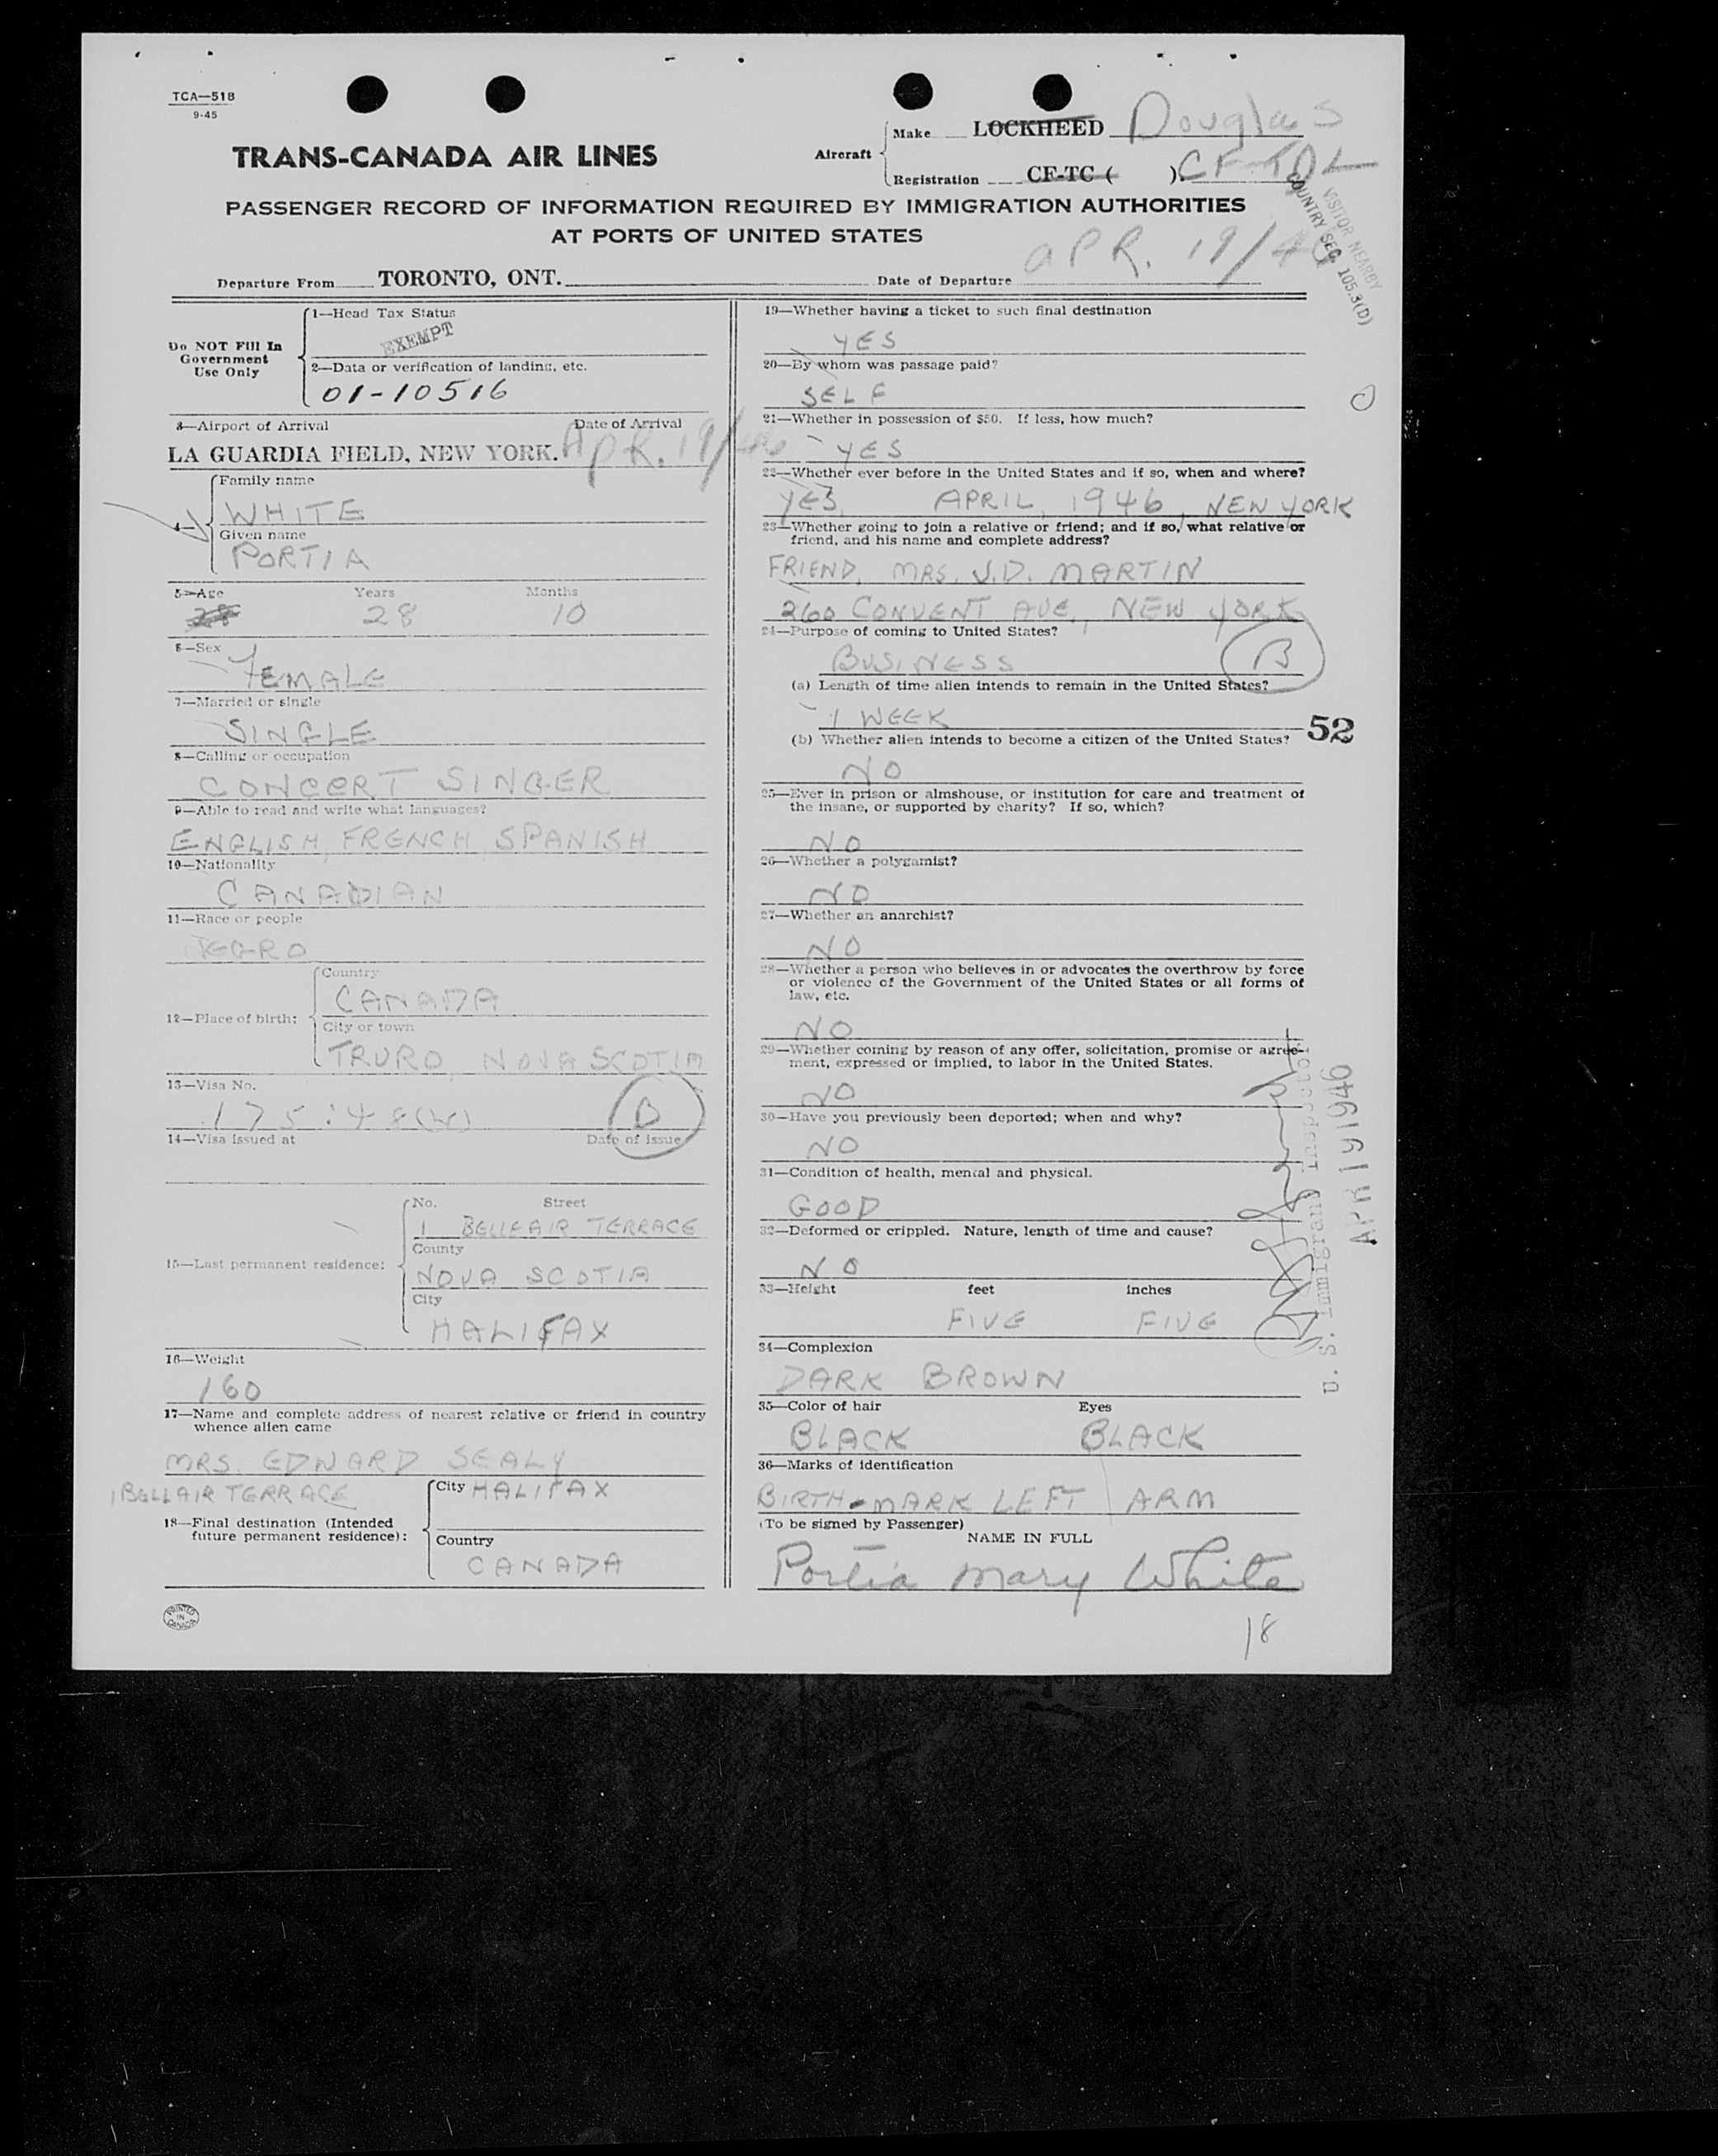 TCA—518
9-45
TRANS-CANADA AIR LINES
Aircraft
Make LOCKHEED Douglas
Registration CF-TC ( ) CF-TDL
PASSENGER RECORD OF INFORMATION REQUIRED BY IMMIGRATION AUTHORITIES
AT PORTS OF UNITED STATES
VISITOR NEARBY
COUNTRY SEC. 105.3(D)
Departure From TORONTO, ONT. Date of Departure APR. 19/46
Do NOT Fill In
Government
Use Only
1—Head Tax Status
EXEMPT
2—Data or verification of landing, etc.
01-10516
3—Airport of Arrival Date of Arrival
LA GUARDIA FIELD, NEW YORK. APR. 19/46
4—
Family name
WHITE
Given name
PORTIA
5—Age Years Months
28 28 10
6—Sex
FEMALE
7—Married or single
SINGLE
8—Calling or occupation
CONCERT SINGER
9—Able to read and write what languages?
ENGLISH, FRENCH, SPANISH
10—Nationality
CANADIAN
11—Race or people
NEGRO
12—Place of birth:
Country
CANADA
City or town
TRURO, NOVA SCOTIA
13—Visa No.
B
14—Visa issued at Date of issue
15—Last permanent residence:
No. Street
1 BELLEAIR TERRACE
County
NOVA SCOTIA
City
HALIFAX
16—Weight
160
17—Name and complete address of nearest relative or friend in country
whence alien came
MRS. EDWARD SEALY
1 BELLAIR TERRACE
18—Final destination (Intended
future permanent residence):
City HALIFAX
Country
CANADA
PRINTED
IN
CANADA
19—Whether having a ticket to such final destination
YES
20—By whom was passage paid?
SELF
21—Whether in possession of $50. If less, how much?
YES
22—Whether ever before in the United States and if so, when and where?
YES, APRIL, 1946, NEW YORK
23—Whether going to join a relative or friend; and if so, what relative or
friend, and his name and complete address?
FRIEND, MRS. J.D. MARTIN
260 CONVENT AVE., NEW YORK
24—Purpose of coming to United States?
BUSINESS B
(a) Length of time alien intends to remain in the United States?
1 WEEK
52
(b) Whether alien intends to become a citizen of the United States?
NO
25—Ever in prison or almshouse, or institution for care and treatment of
the insane, or supported by charity? If so, which?
NO
26—Whether a polygamist?
NO
27—Whether an anarchist?
NO
28—Whether a person who believes in or advocates the overthrow by force
or violence of the Government of the United States or all forms of
law, etc.
NO
29—Whether coming by reason of any offer, solicitation, promise or agree-
ment, expressed or implied, to labor in the United States.
NO
30—Have you previously been deported; when and why?
NO
31—Condition of health, mental and physical.
GOOD
32—Deformed or crippled. Nature, length of time and cause?
NO
33—Height feet inches
FIVE FIVE
34—Complexion
DARK BROWN
35—Color of hair Eyes
BLACK BLACK
36—Marks of identification
BIRTH-MARK LEFT ARM
(To be signed by Passenger)
NAME IN FULL
Portia Mary White
18
U. S. Immigrant Inspector
APR 19 1946